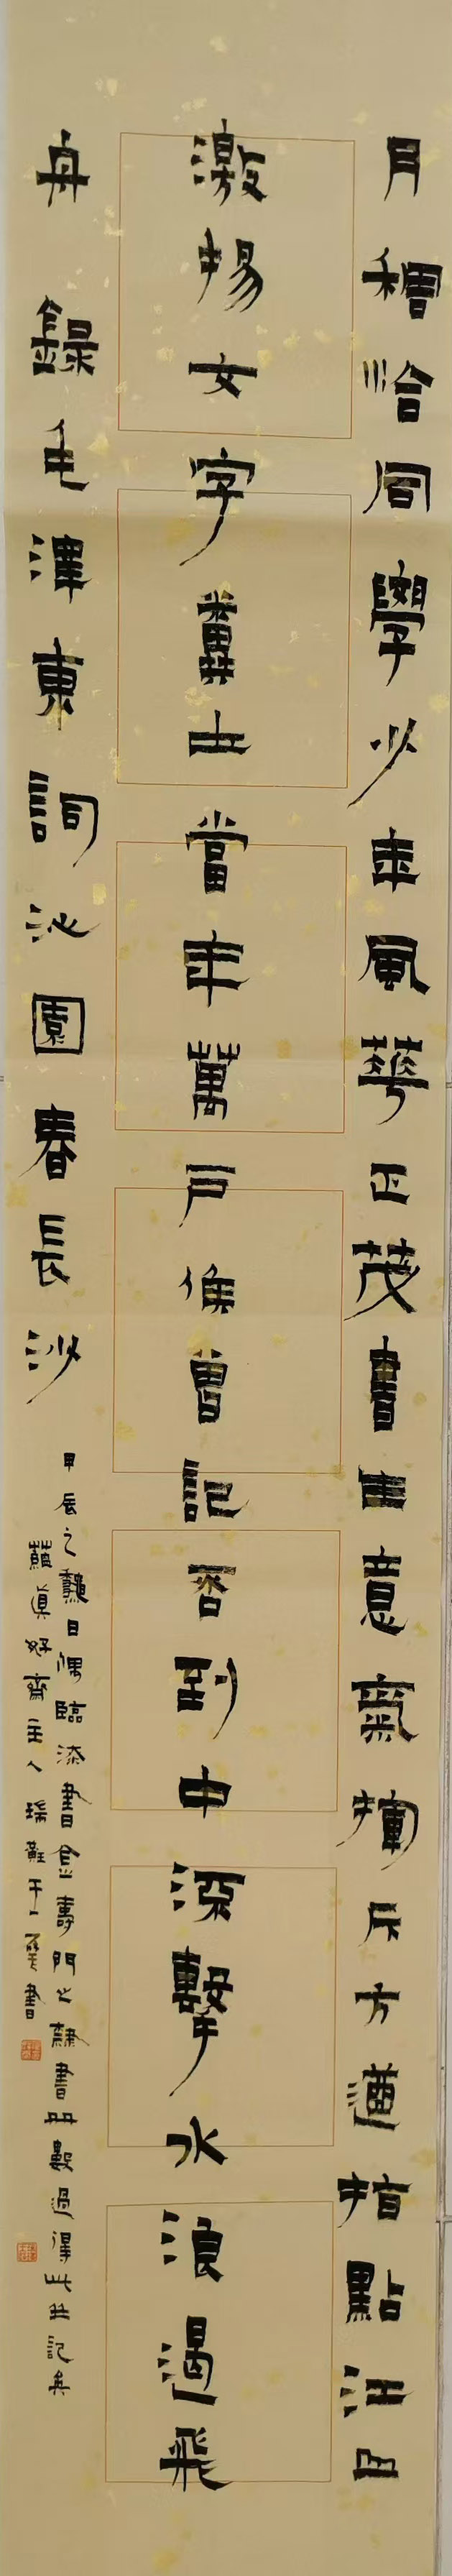 月稠恰同學少年風華正茂書生意氣揮斥方遒指點江山
激揚文字糞土當年萬戶侯曾記否到中流擊水浪遏飛
舟 錄毛澤東詞沁園春長沙
甲辰之龝日偶臨漆書金壽門之隸書冊數過得此並記矣
真好齋主人瑞于書